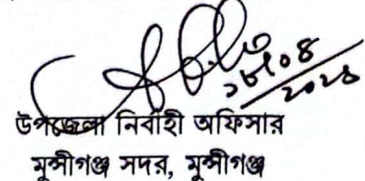 ১৮/০৪
২০২৪
উপজেলা নির্বাহী অফিসার
মুন্সীগঞ্জ সদর, মুন্সীগঞ্জ